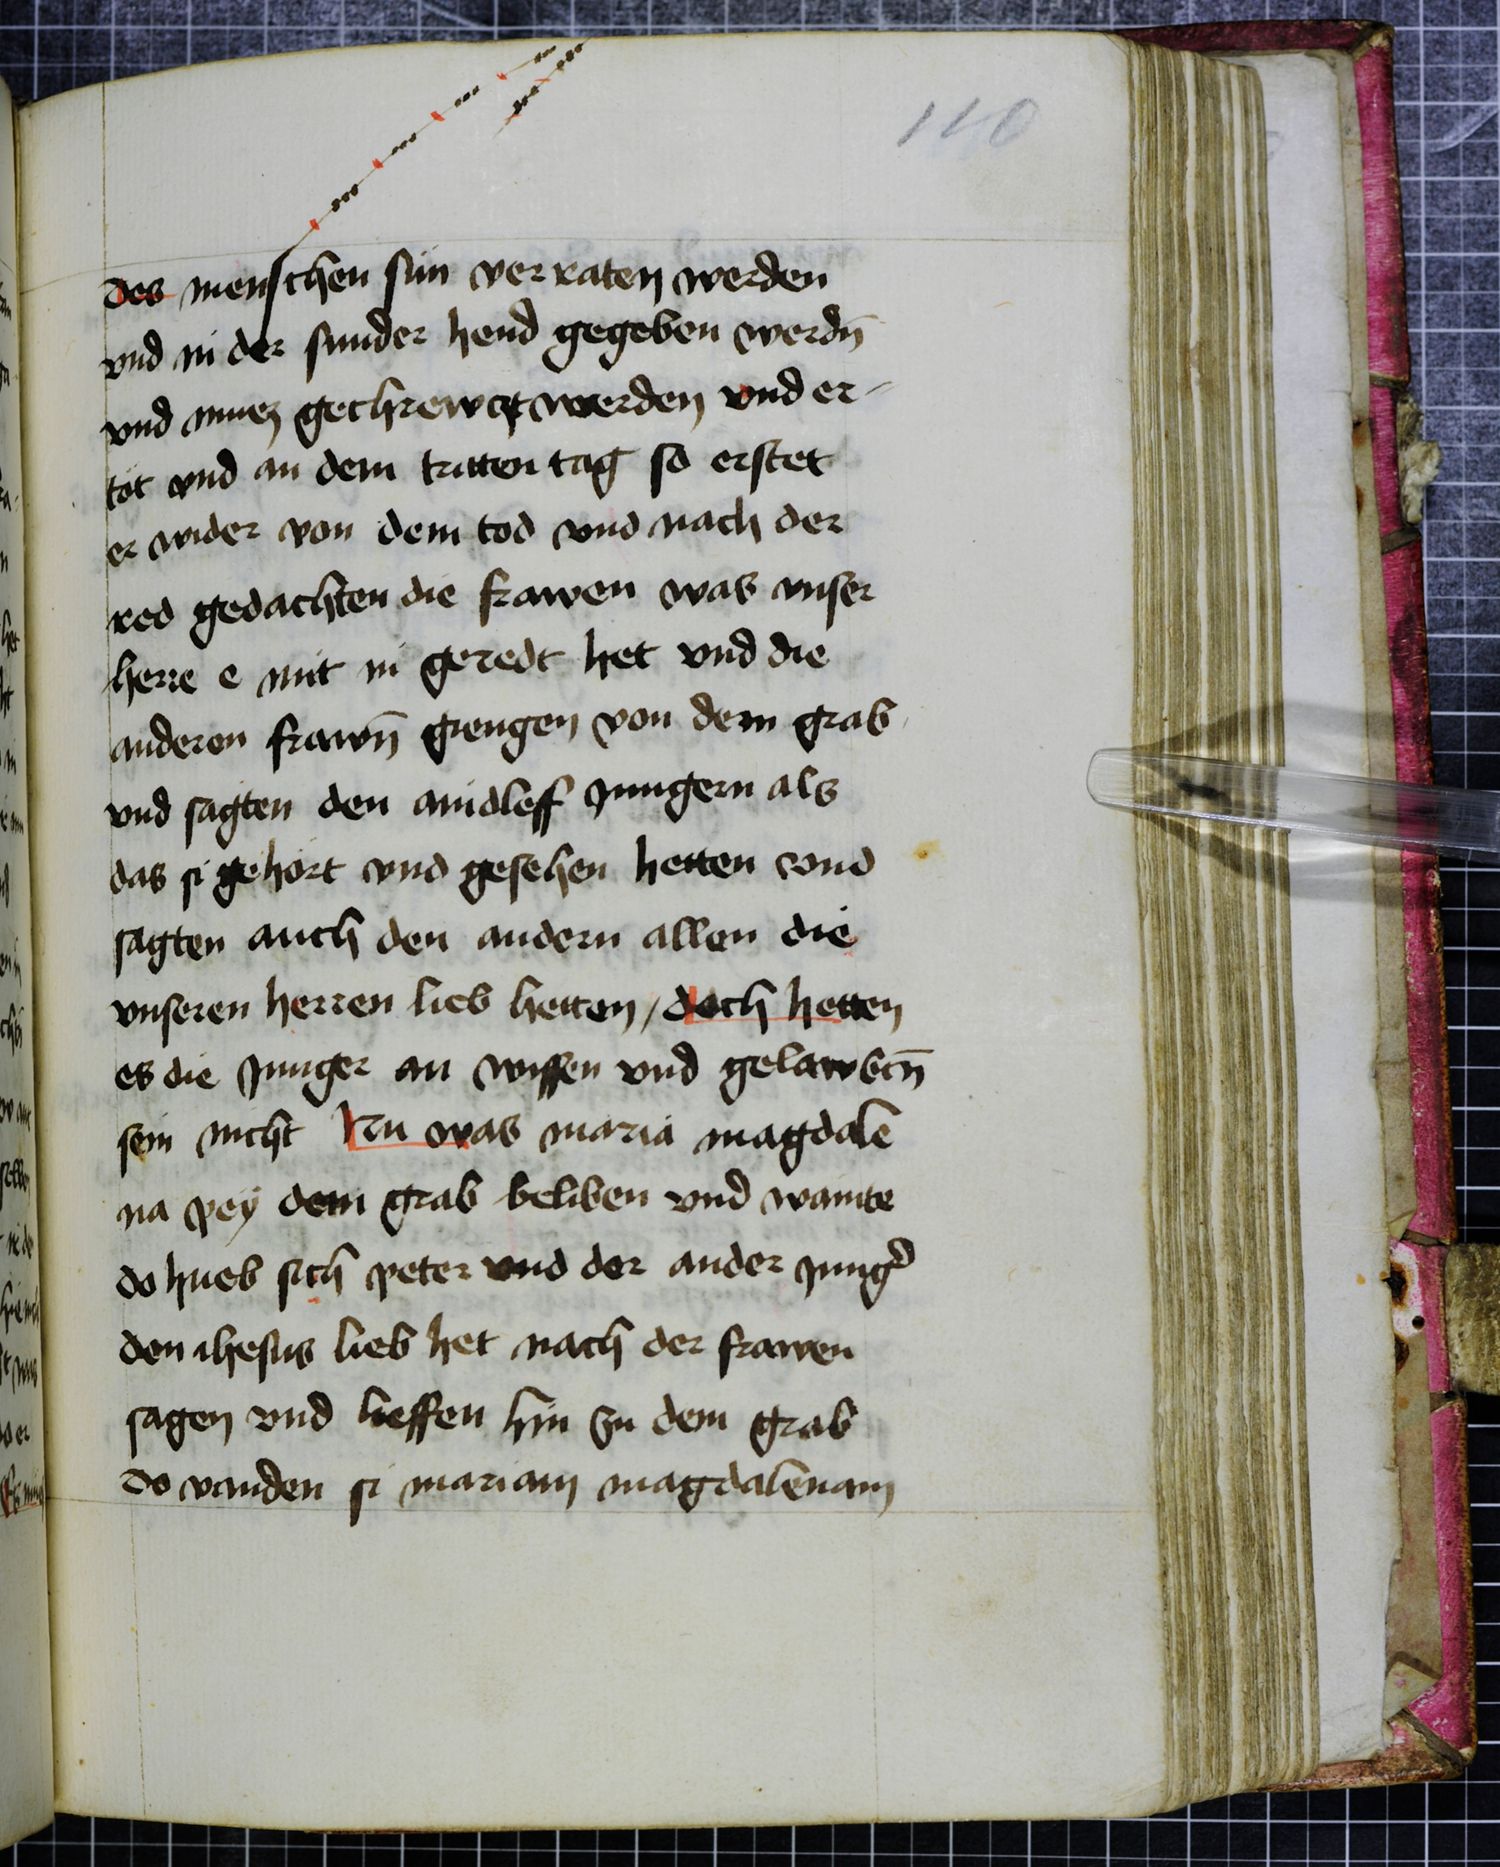 110
des menschen sun verraten werden
vnd in der sunder hend gegeben werdn̄
vnd muez gechrewczt werden vnd er-
tot vnd an dem tritten tag so erstet
er wider von dem tod vnd nach der
red gedachten die frawen was vnser
herre e mit in geredt het vnd die
anderen frawn̄ giengen von dem grab
vnd sagten den aindleff Jungern als
das si gehort vnd gesehen hetten vnd
sagten auch den andern allen die
vnseren herren lieb hetten / doch hetten
es die Junger an wissen vnd gelawbtn̄
sein nicht Nu was maria magdale
na pey dem grab beliben vnd wainte
do hueb sich peter vnd der ander Jungᵈ
den ihesus lieb het nach der frawen
sagen vnd lieffen hin zu dem grab
do vanden si mariam magdalenam